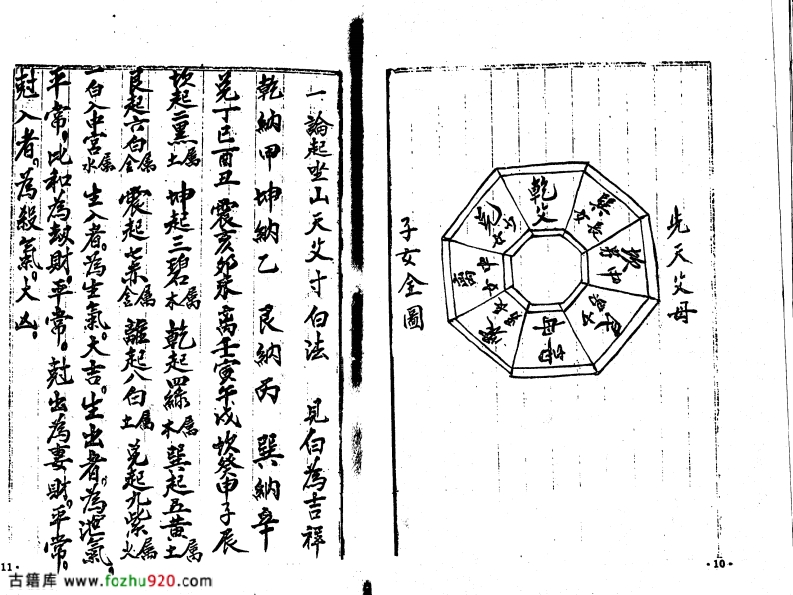 先天父母
子女全圖
乾父
巽長女
坎中男
艮少男
坤母
震長男
離中女
兌少女
·10·
一論起坐山天父寸白法 見白為吉祥
乾納甲坤納乙 艮納丙 巽納辛
兌丁巳酉丑 震亥卯未 离壬寅午戌 坎癸申子辰
坎起二黑属土 坤起三碧属木 乾起四綠属木 巽起五黄属土
艮起六白属金 震起七赤属金 離起八白属土 兌起九紫属火
一白入中宮属水 生入者。為生氣。大吉。生出者。為泄氣。
平常。比和為劫財。平常。尅出為妻財。平常。
尅入者。為殺氣。大凶。
11·
古籍库 www.fozhu920.com